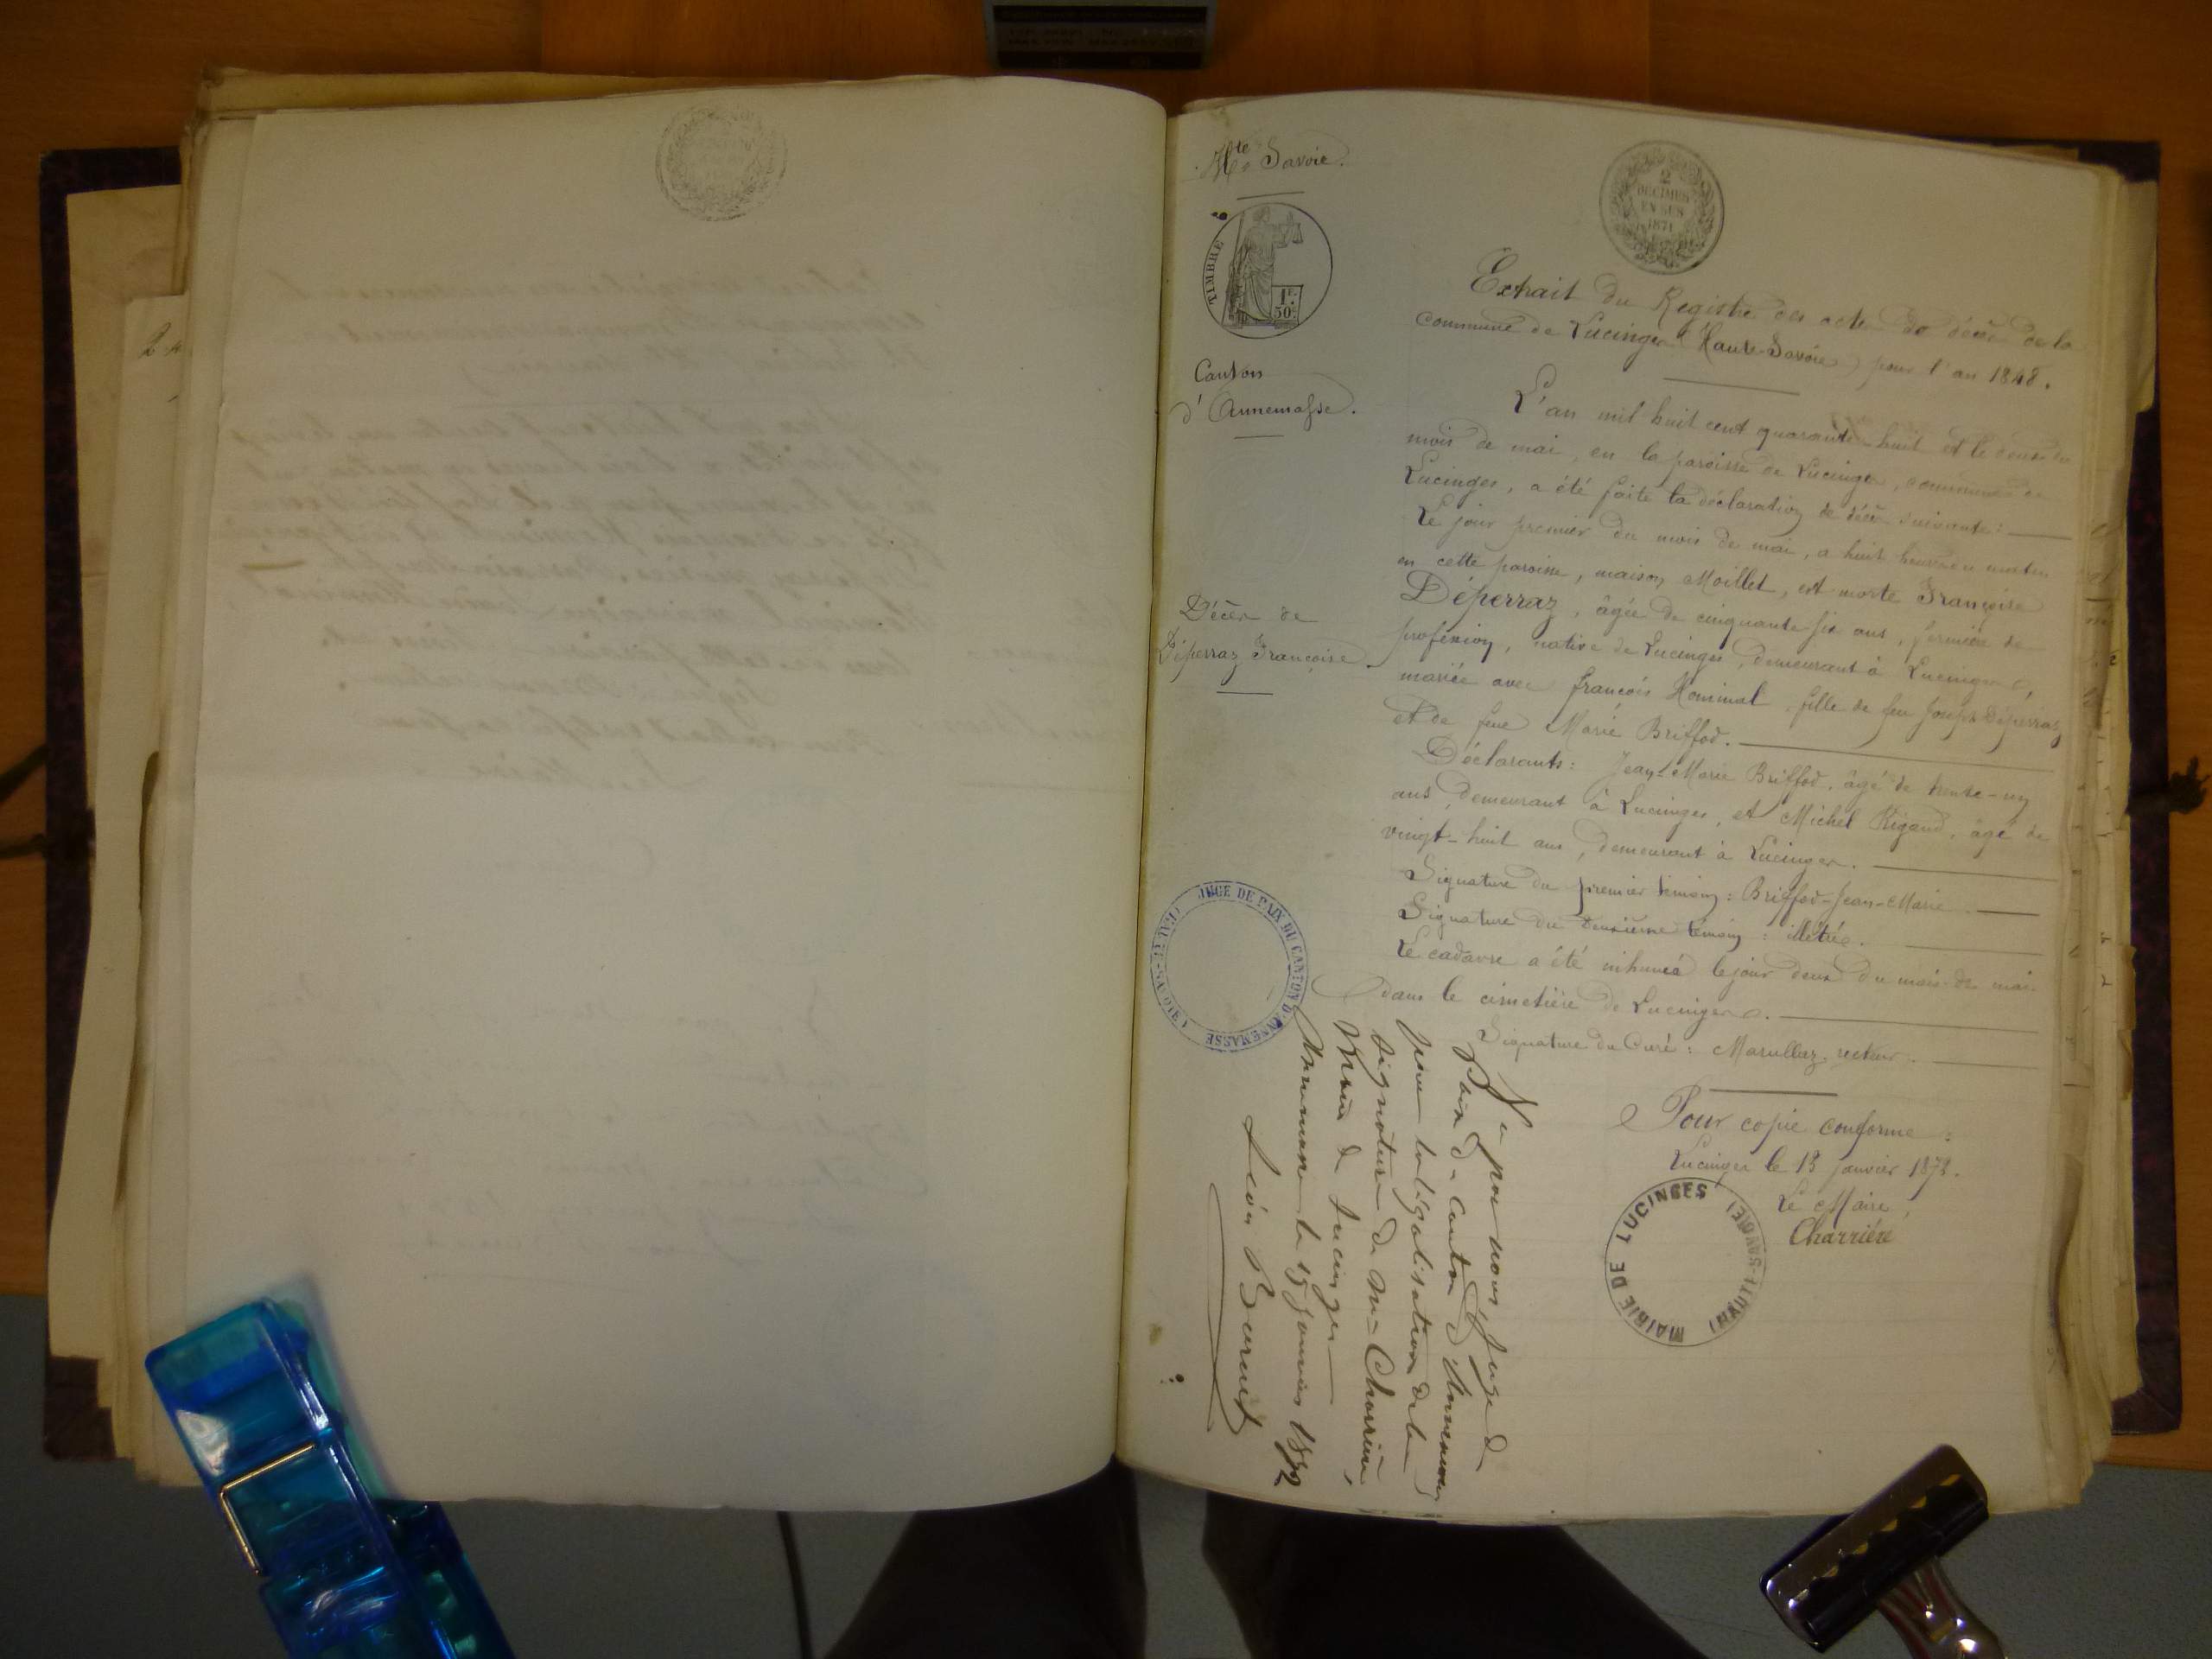 Hte Savoie.
TIMBRE
1F.
50c.
Canton
d'Annemasse.
Décès de
Déperraz Françoise
2
DECIMES
EN SUS
1871
Extrait du Registre des actes de décès de la
commune de Lucinges (Haute-Savoie) pour l'an 1848.
L'an mil huit cent quarante-huit et le deux du
mois de mai, en la paroisse de Lucinges, commune de
Lucinges, a été faite la déclaration de décès suivante:
Le jour premier du mois de mai, à huit heures du matin
en cette paroisse, maison Moillet, est morte Françoise
Déperraz, âgée de cinquante six ans, fermière de
profession, native de Lucinges, demeurant à Lucinges,
mariée avec françois Hominal, fille de feu Joseph Déperraz
et de feue Marie Briffod.
Déclarants: Jean-Marie Briffod, âgé de trente-un
ans, demeurant à Lucinges, et Michel Rigaud, âgé de
vingt-huit ans, demeurant à Lucinges.
Signature du premier témoin: Briffod-Jean-Marie
Signature du deuxième témoin: illétré.
Le cadavre a été inhumé le jour deux du mois de mai
dans le cimetière de Lucinges.
Signature du Curé: Marulluz, recteur.
Pour copie conforme:
Lucinges le 13 janvier 1872.
Le Maire,
Charrière
MAIRIE DE LUCINGES (HAUTE-SAVOIE)
JUGE DE PAIX DU CANTON D'ANNEMASSE (HAUTE-SAVOIE)
Vu par nous Juge de
Paix du Canton d'Annemasse
pour la légalisation de la
signature de Mr Charrière,
Maire de Lucinges
Annemasse le 15 janvier 1872